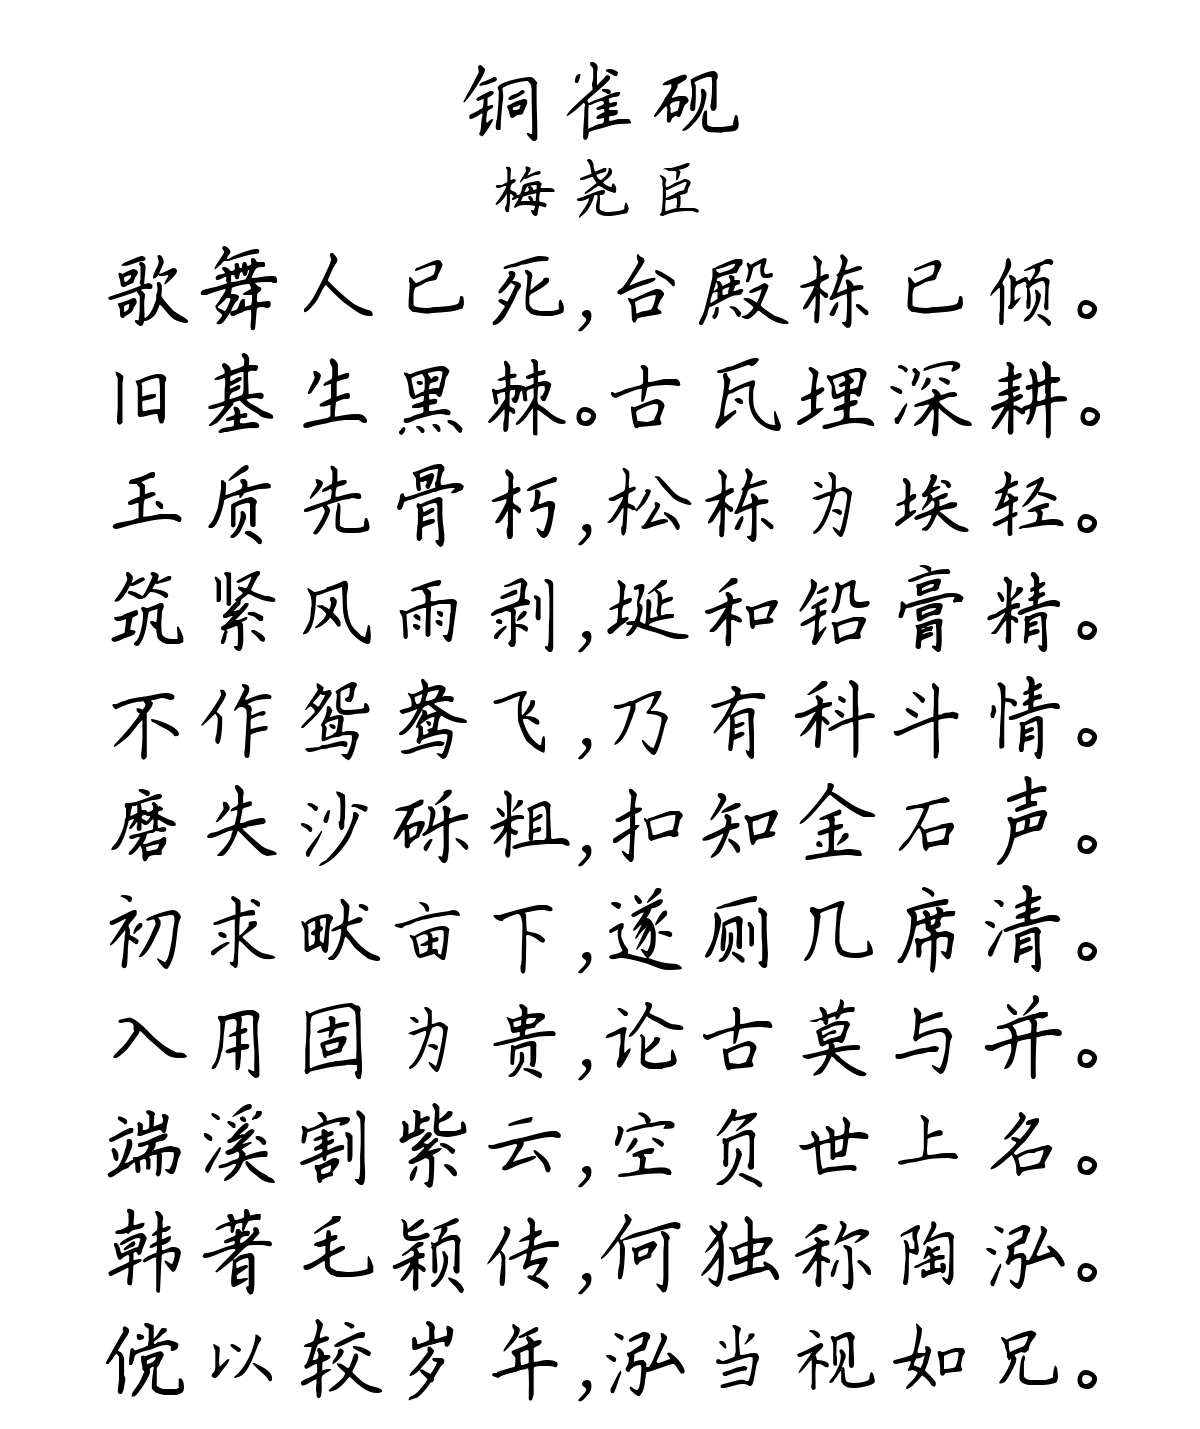 铜雀砚
梅尧臣
歌舞人已死,台殿栋已倾。
旧基生黑棘。古瓦埋深耕。
玉质先骨朽,松栋为埃轻。
筑紧风雨剥,埏和铅膏精。
不作鸳鸯飞,乃有科斗情。
磨失沙砾粗,扣知金石声。
初求畎亩下,遂厕几席清。
入用固为贵,论古莫与并。
端溪割紫云,空负世上名。
韩著毛颖传,何独称陶泓。
傥以较岁年,泓当视如兄。